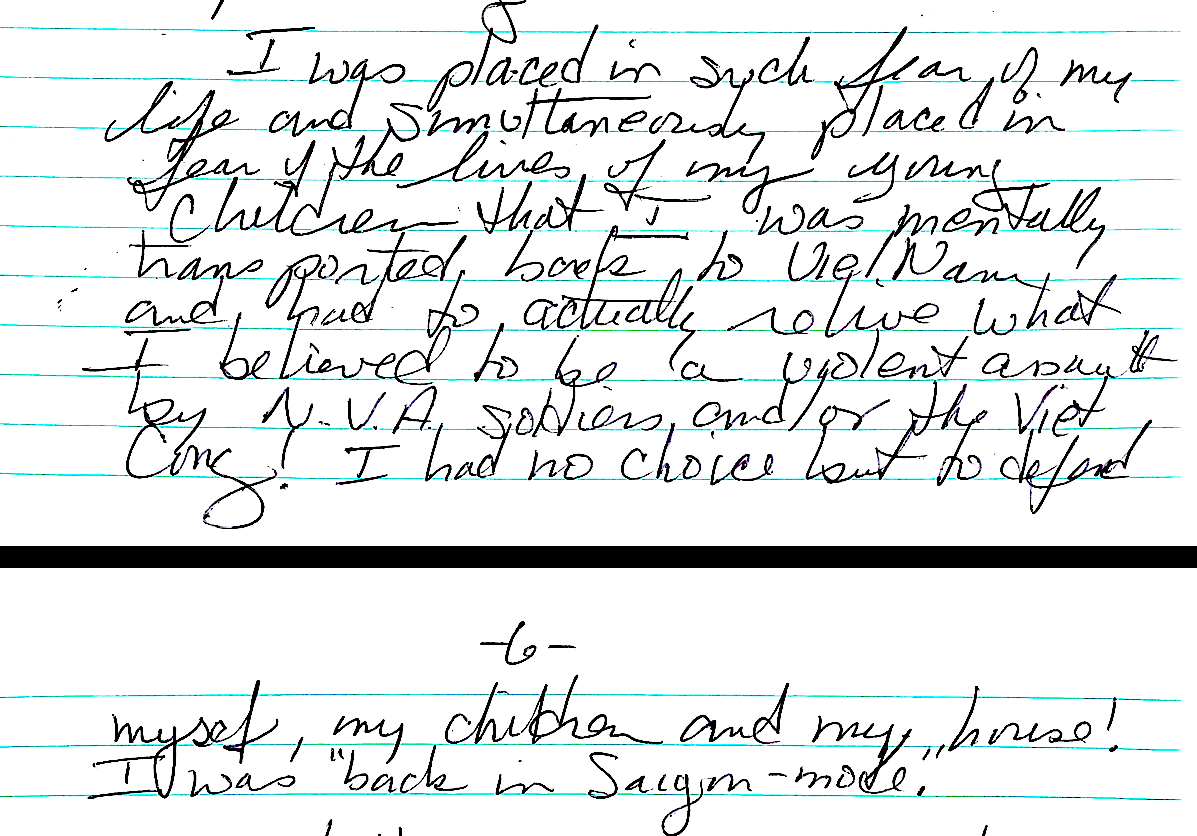 I was placed in such fear of my
life and simultaneously placed in
fear of the lives of my young
children that I was mentally
transported back to VietNam,
and had to actually relive what
I believed to be a violent assault
by N.V.A. soldiers and/or the Viet
Cong! I had no choice but to defend
-6-
myself, my children and my house!
I was "back in Saigon-mode."